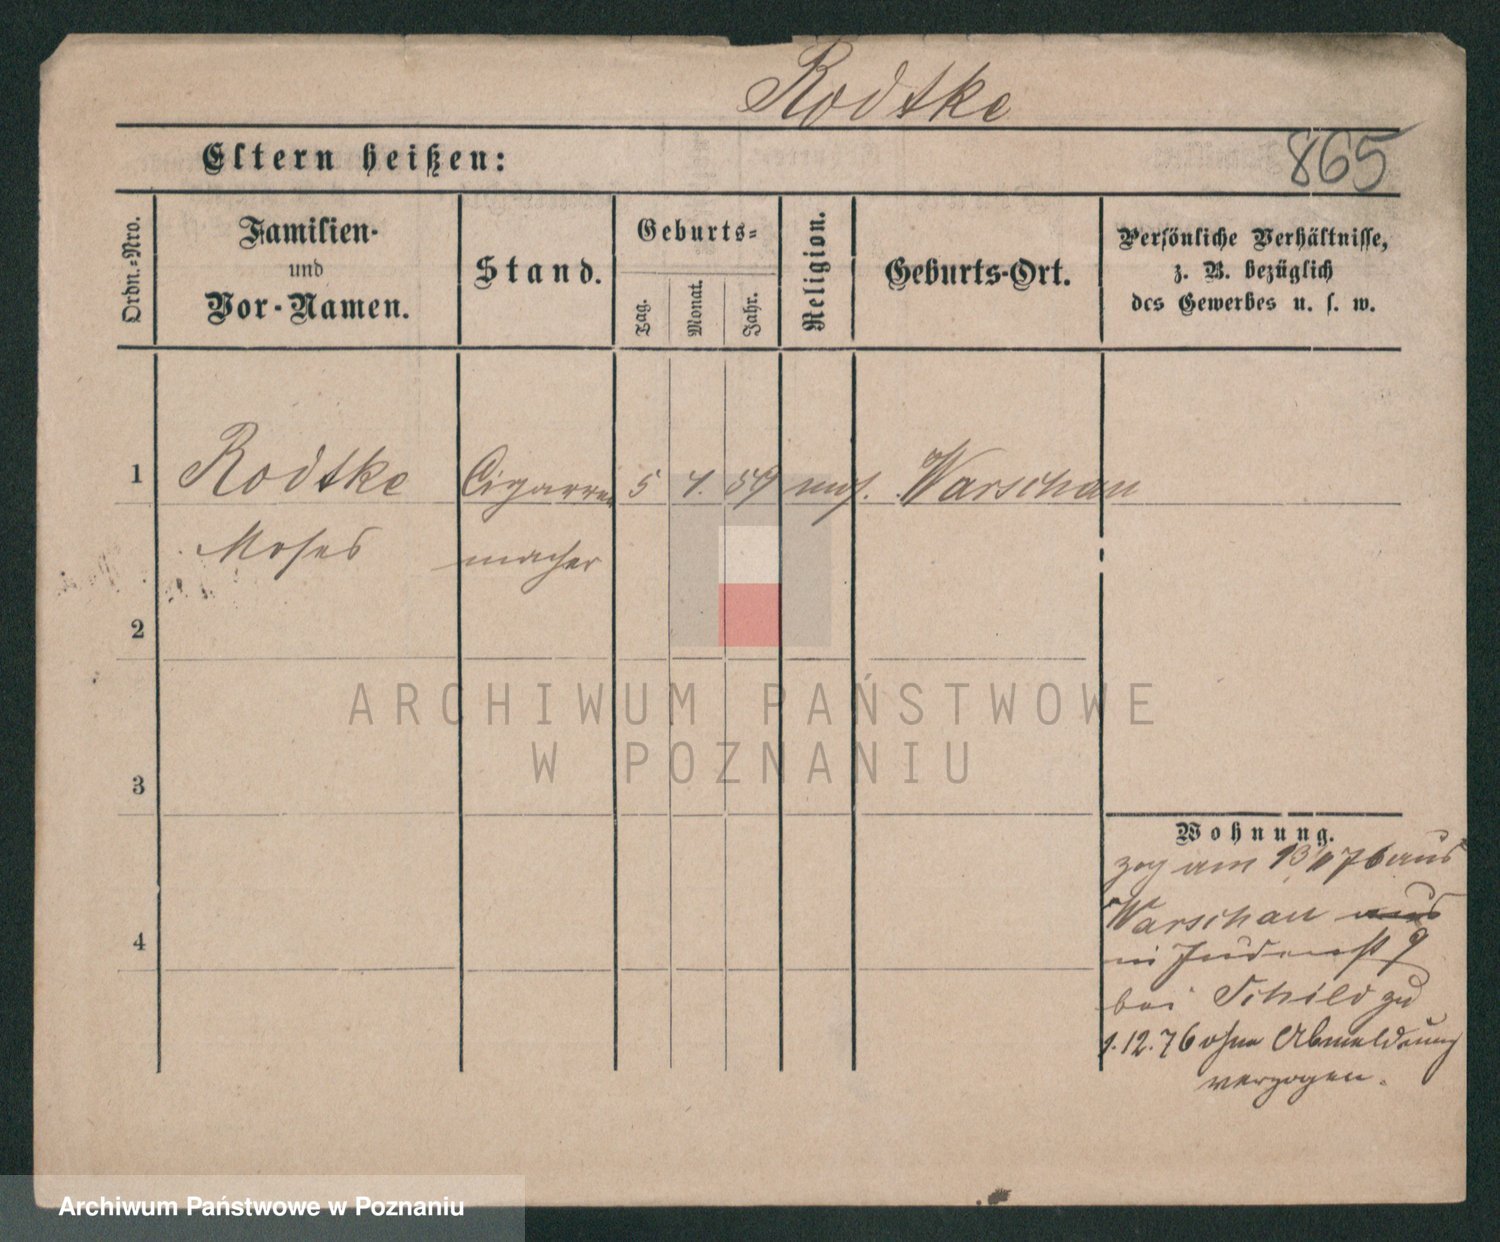 Rodtke
865
Eltern heißen:
Ordn.-Nro.
Familien-
und
Vor-Namen.
Stand.
Geburts-
Tag.
Monat.
Jahr.
Religion.
Geburts-Ort.
Persönliche Verhältnisse,
z. B. bezüglich
des Gewerbes u. s. w.
1 Rodtke Cigarren 5 4. 59 mos. Warschau
Moses macher
2
3
4
Wohnung.
zog am 13/ 76 aus
Warschau aus
in Judenst 9
bei Schild zu
1.12.76 ohne Abmeldung
verzogen.
ARCHIWUM PAŃSTWOWE
W POZNANIU
Archiwum Państwowe w Poznaniu